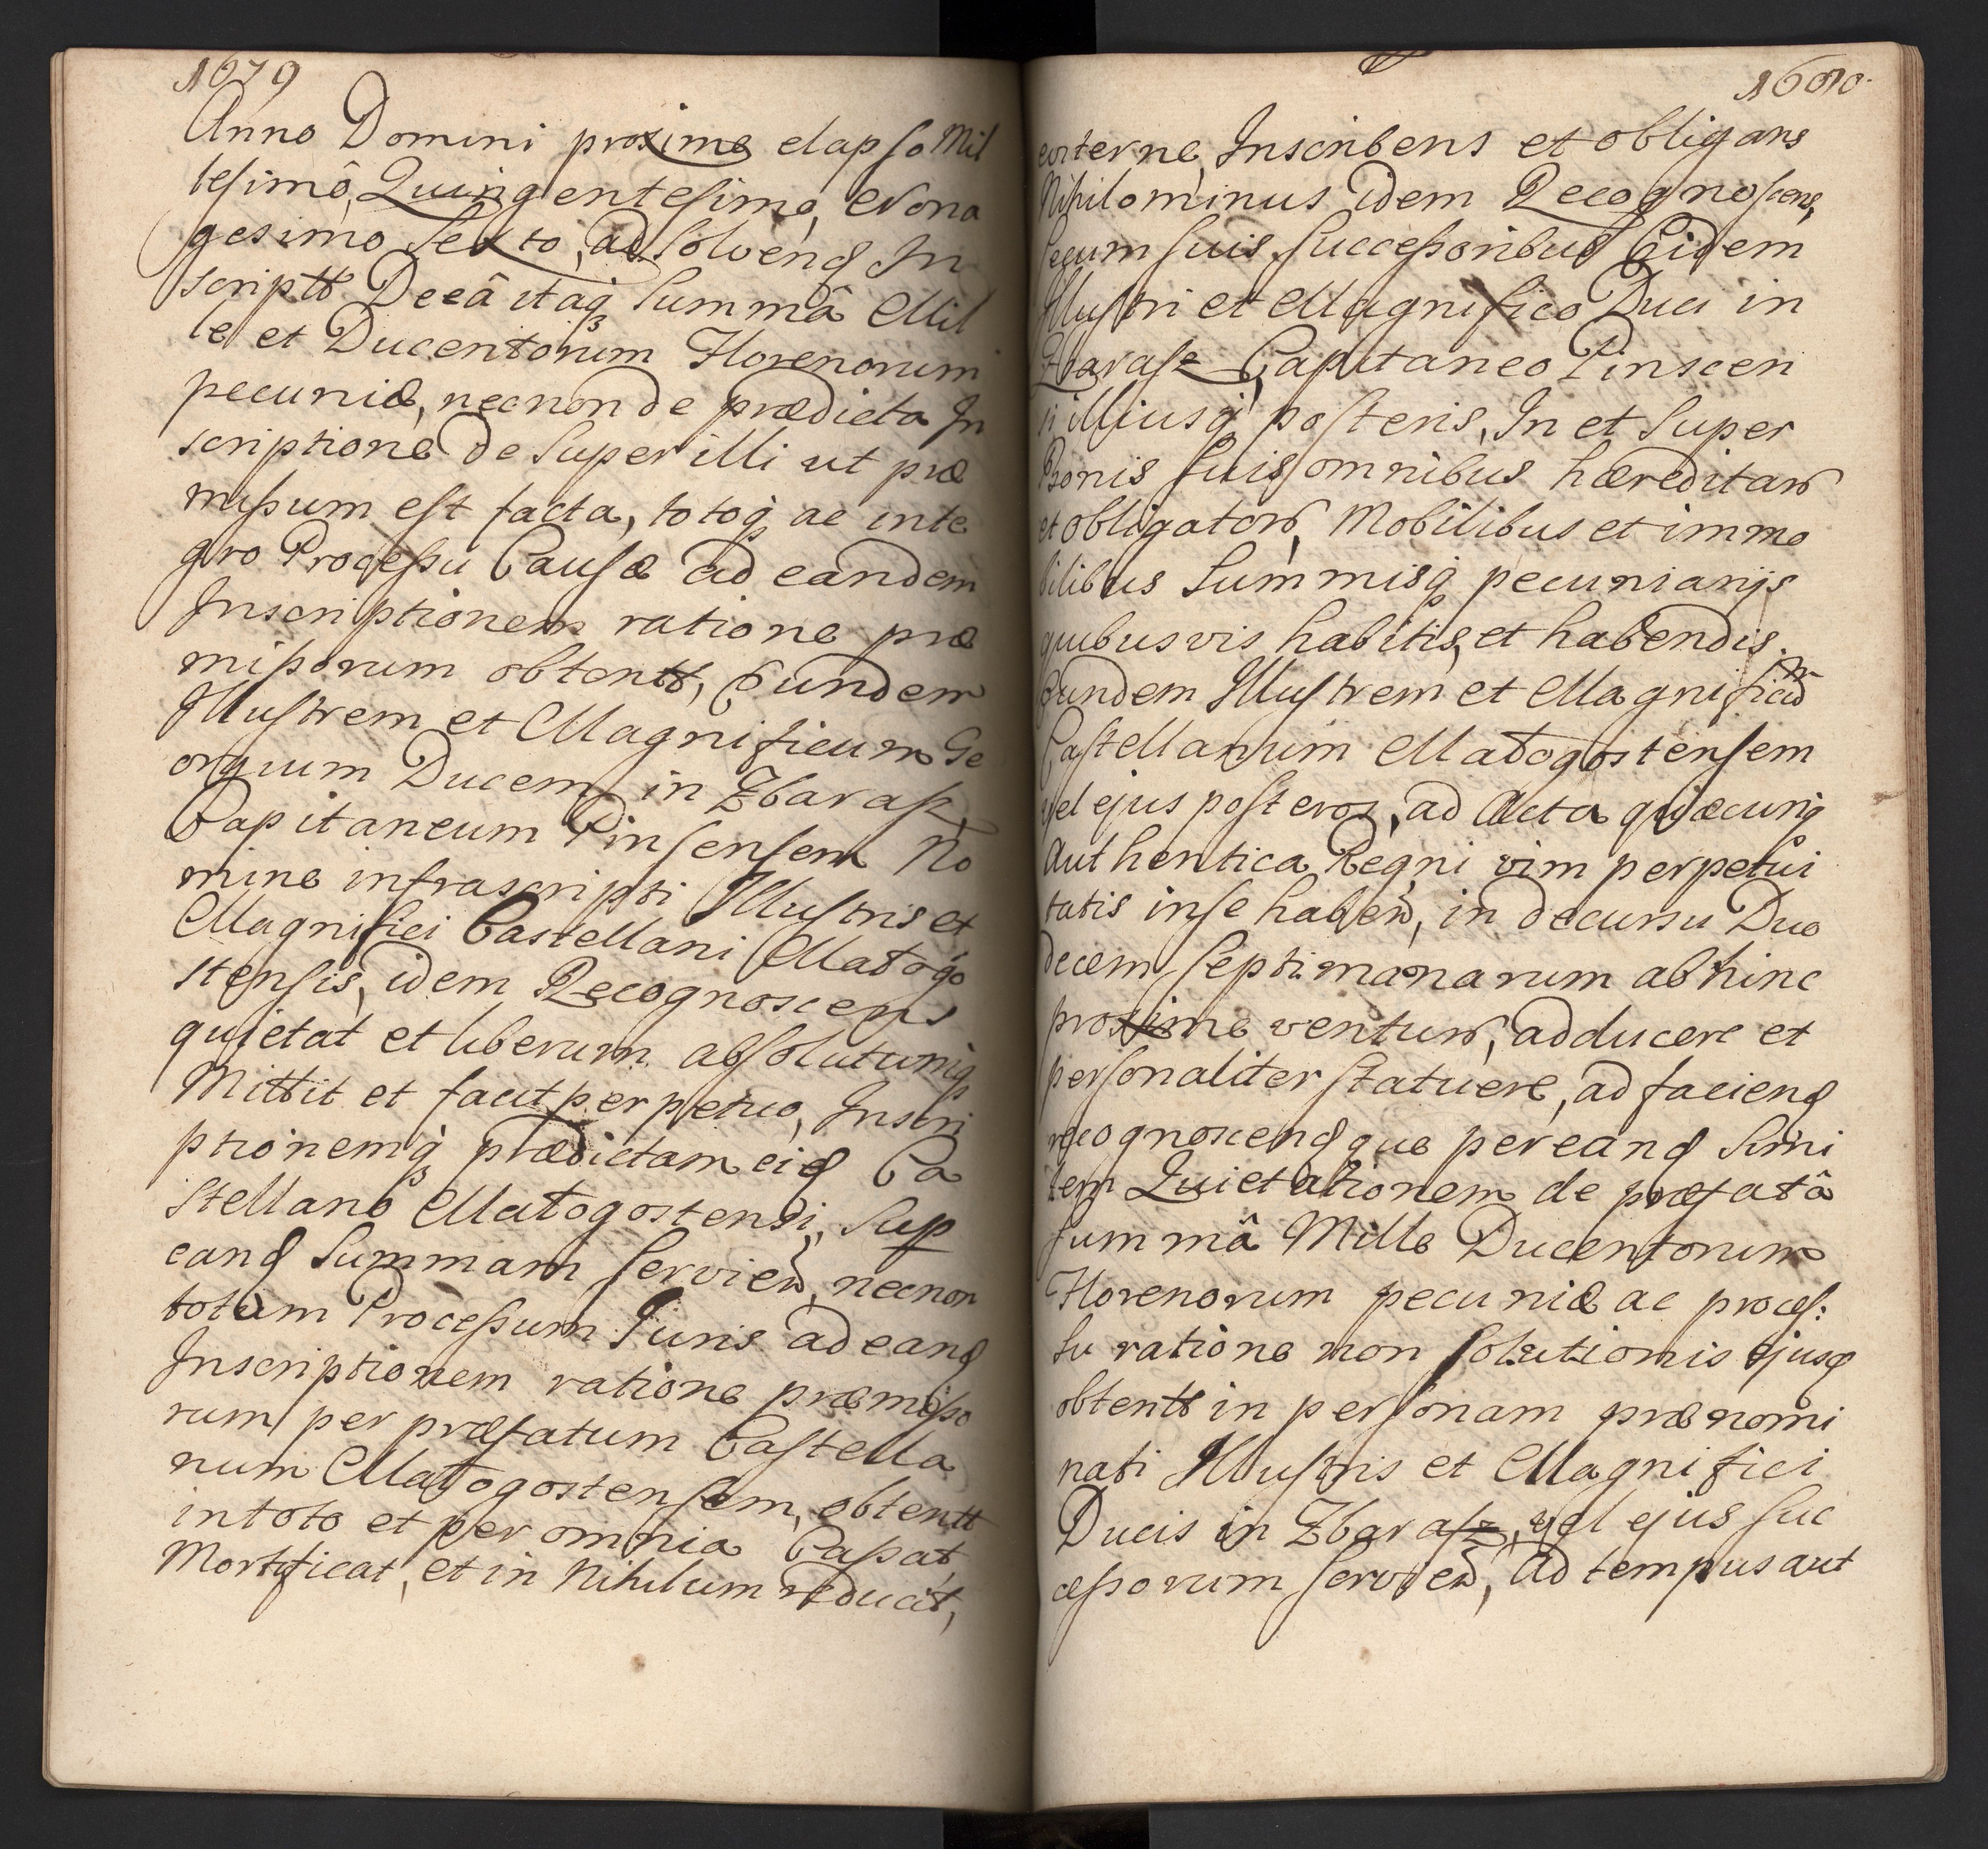 1679
Anno Domini proxime elapso Mil
lesimô, Quingentesimo, Nona
gesimo Sexto, ad Solvend In
scriptt Deeâ itaq Summâ Mil
le et Ducentorum Florenorum
pecuniæ, necnon de prædicta In
scriptione De super illi ut præ
missum est facta, totoq ac inte
gro Processu Causæ ad eandem
Inscriptionem ratione præ
missorum obtentt, Eundem
Illustrem et Magnificum Ge
orgium Ducem in Zbarasz
Capitaneum Pinsensem No
mine infrascripti Illustris et
Magnifici Castellani Małogo
stensis, idem Recognoscens
quietat et liberum absolutumq
Mittit et facit perpetuo, Inscri
ptionemq prædictam eid Ca
stellano Małogostensi, Sup
eand Summam servien, necnon
totum Processum Juris ad eand
Inscriptionem ratione præmisso
rum per præfatum Castella
num Małogostensem, obtentt
in toto et per omnia Cassat,
Mortificat, et in Nihilum reducit,
1680
eviterne, Inscribens et obligans
Nihilominus idem Recognoscens,
secum suis Successoribus Eidem
Illustri et Magnifico Duci in
Zbarasz Capitaneo Pinscen
si illiusq posteris, In et Super
Bonis suis omnibus hæreditar
et obligator, Mobilibus et immo
bilibus Summisq pecuniarijs
quibusvis habitis, et habendis.
Eundem Illustrem et Magnificum
Castellanum Małogostensem
vel ejus posteros, ad Acta quæcunq
Authentica Regni vim perpetui
tatis in se haben, in decursu Duo
decem Septimanarum abhinc
proxime ventur, adducere et
personaliter statuere, ad faciend
recognoscendque per eand Simi
lem Quietationem de præfatâ
summâ Mille Ducentorum
Florenorum pecuniæ ac proces:
su ratione non solutionis ejusd
obtentt in personam prænomi
nati Illustris et Magnifici
Ducis in Zbarasz, vel ejus suc
cessorum servien, ad tempus aut